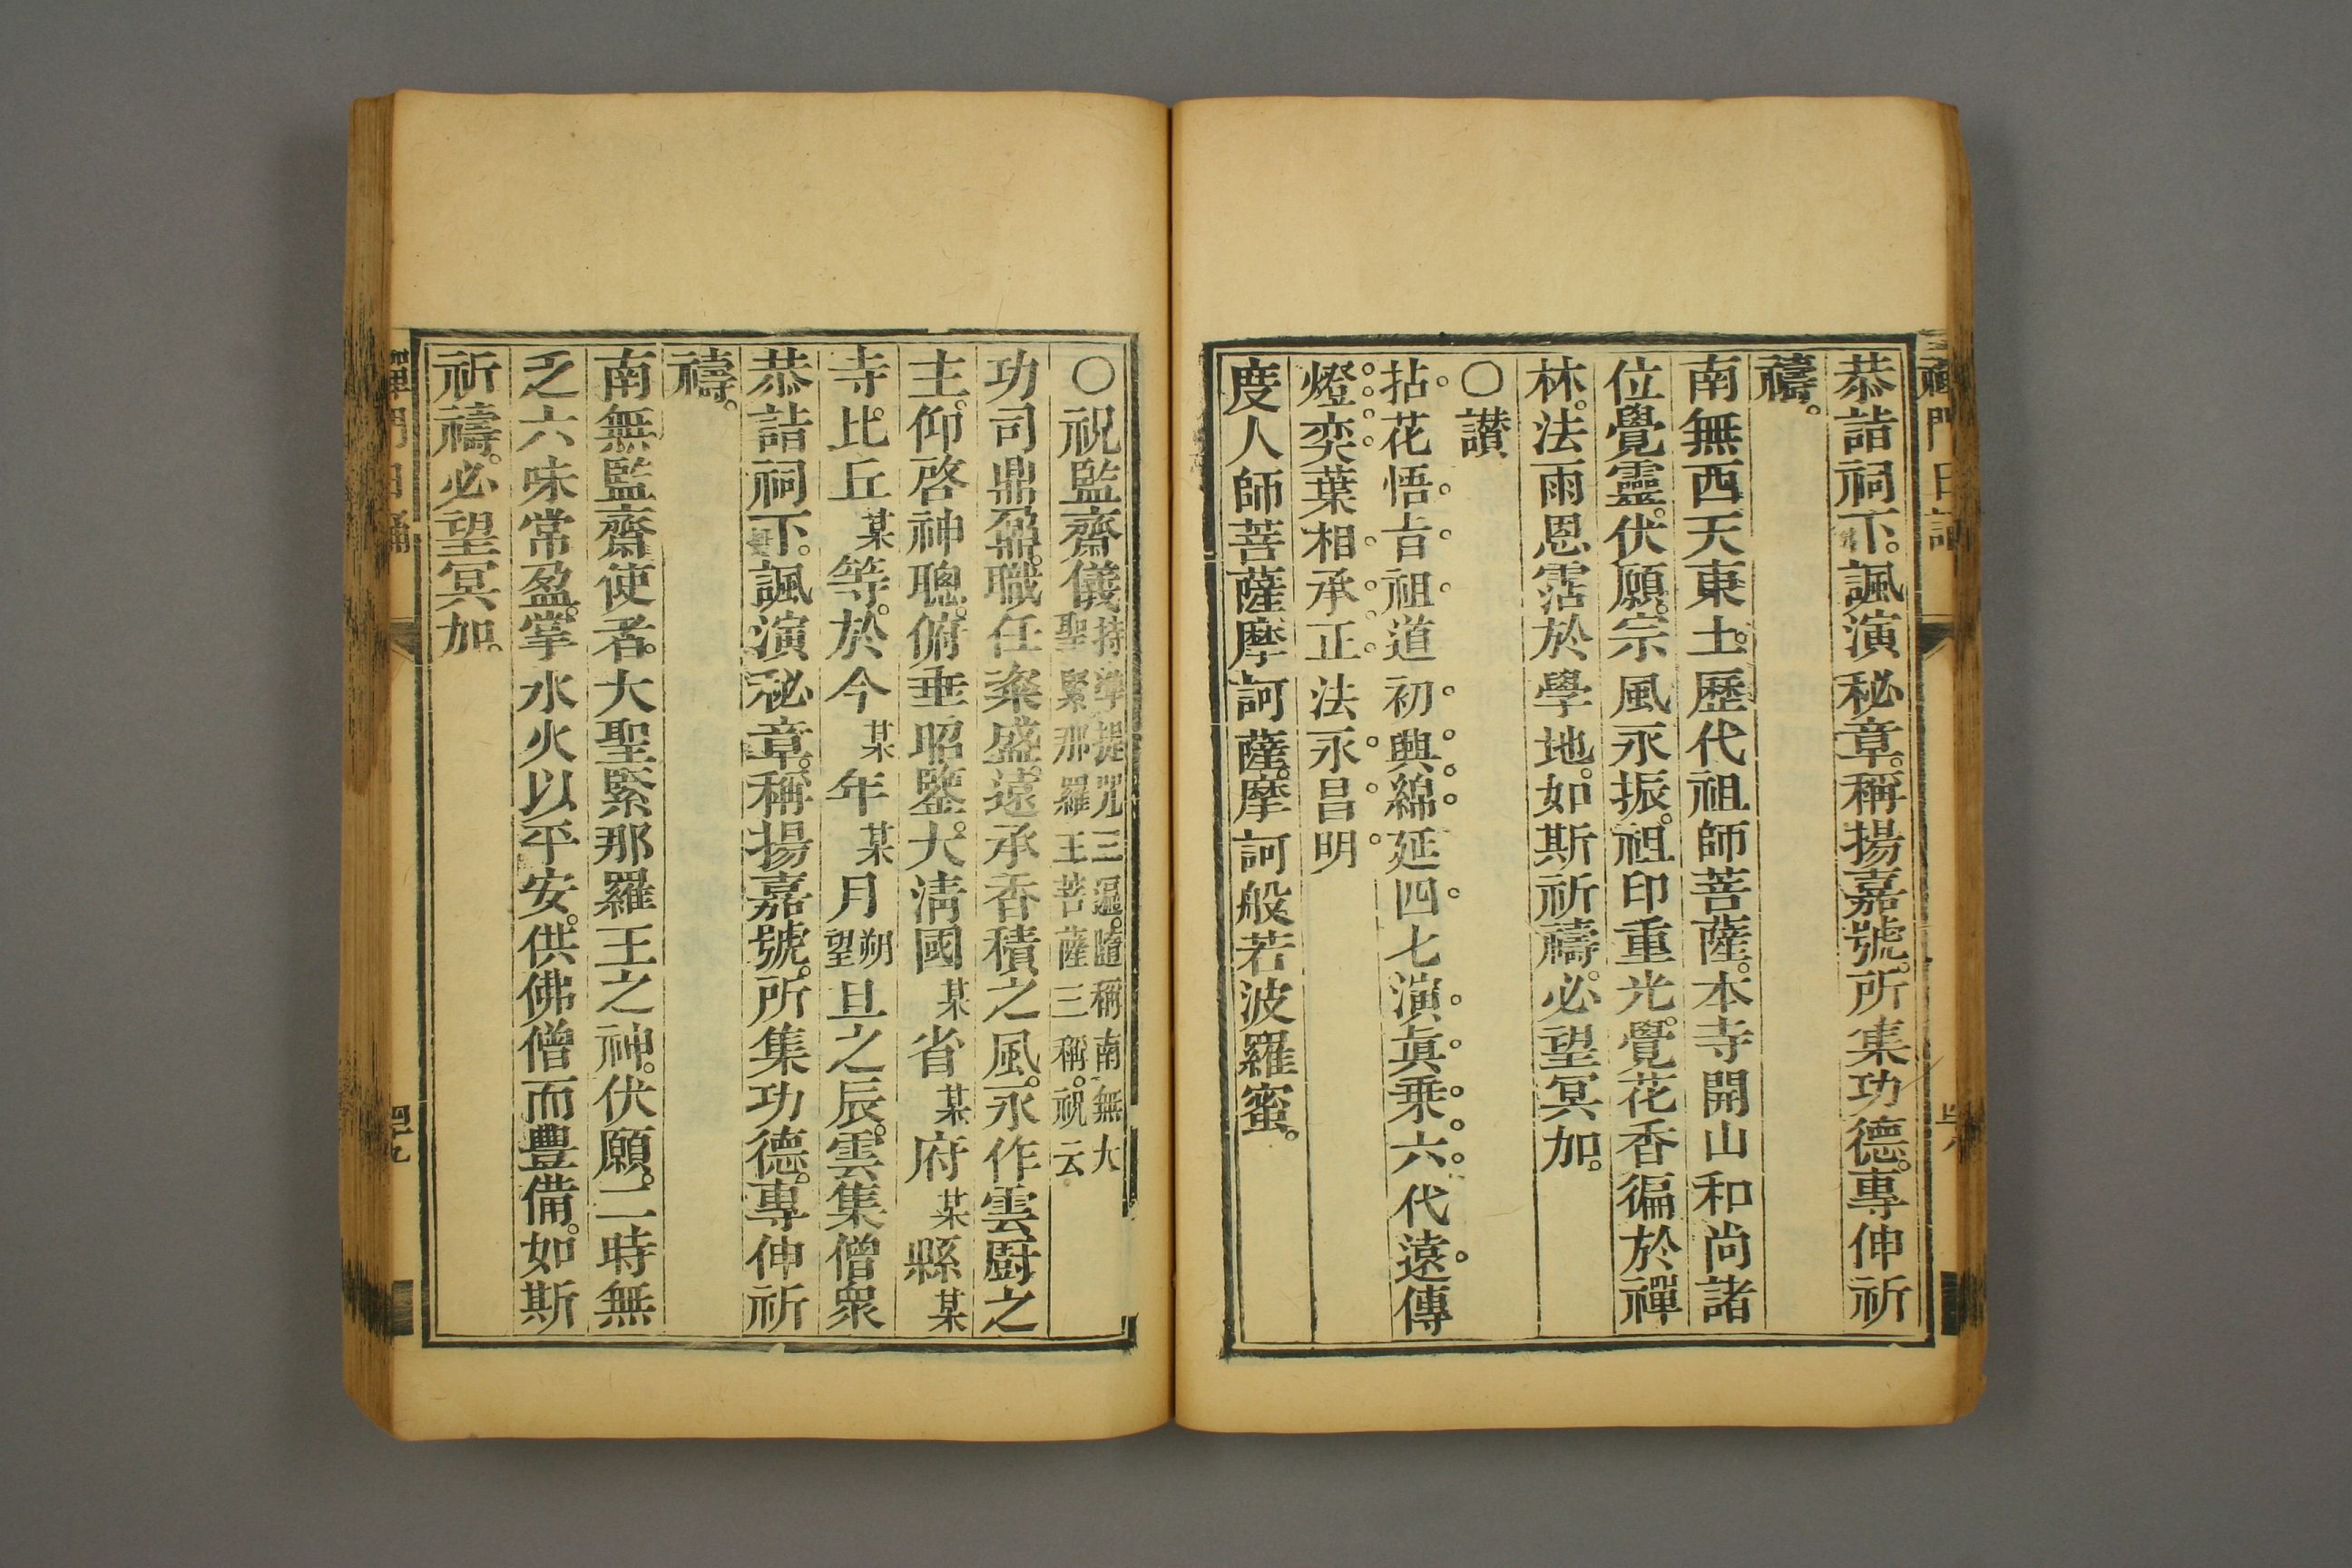 恭詣祠下。諷演秘章。稱揚嘉號。所集功德。專伸祈
禱。
南無西天東土。歷代祖師菩薩。本寺開山和尚諸
位覺靈。伏願。宗風永振。祖印重光。覺花香徧於禪
林。法雨恩霑於學地。如斯祈禱。必望冥加。
○讚
拈花悟旨祖道初興綿延四七演眞乗六代遠傳
燈奕葉相承正法永昌明
度人師菩薩摩訶薩。摩訶般若波羅蜜。
禪門日誦
○祝監齋儀持準提咒三遍。隨稱南無大
聖緊那羅王菩薩三稱。祝云。
功司鼎鼐。職任粢盛。遠承香積之風。永作雲厨之
主。仰啓神聰。俯垂昭鑒。大清國某省某府某縣某
寺。比丘某等。於今某年某月朔望旦之辰。雲集僧衆
恭詣祠下。諷演秘章。稱揚嘉號。所集功德。專伸祈
禱。
南無監齋使者。大聖緊那羅王之神。伏願。二時無
乏六味常盈。掌水火以平安。供佛僧而豐備。如斯
祈禱。必望冥加。
禪門日誦
四十九